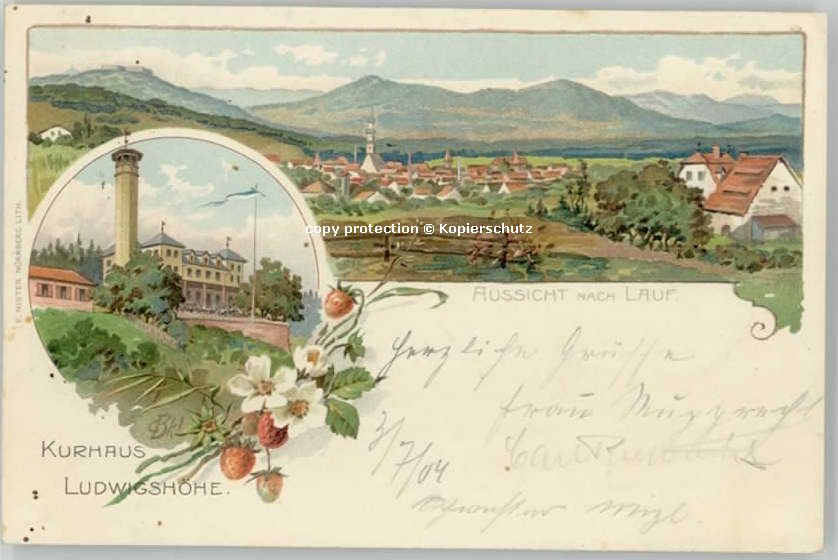 copy protection © Kopierschutz
AUSSICHT NACH LAUF.
E. NISTER, NÜRNBERG LITH.
KURHAUS
LUDWIGSHÖHE.
Herzliche Grüsse
Frau Rupprecht
Carl
3/7/04